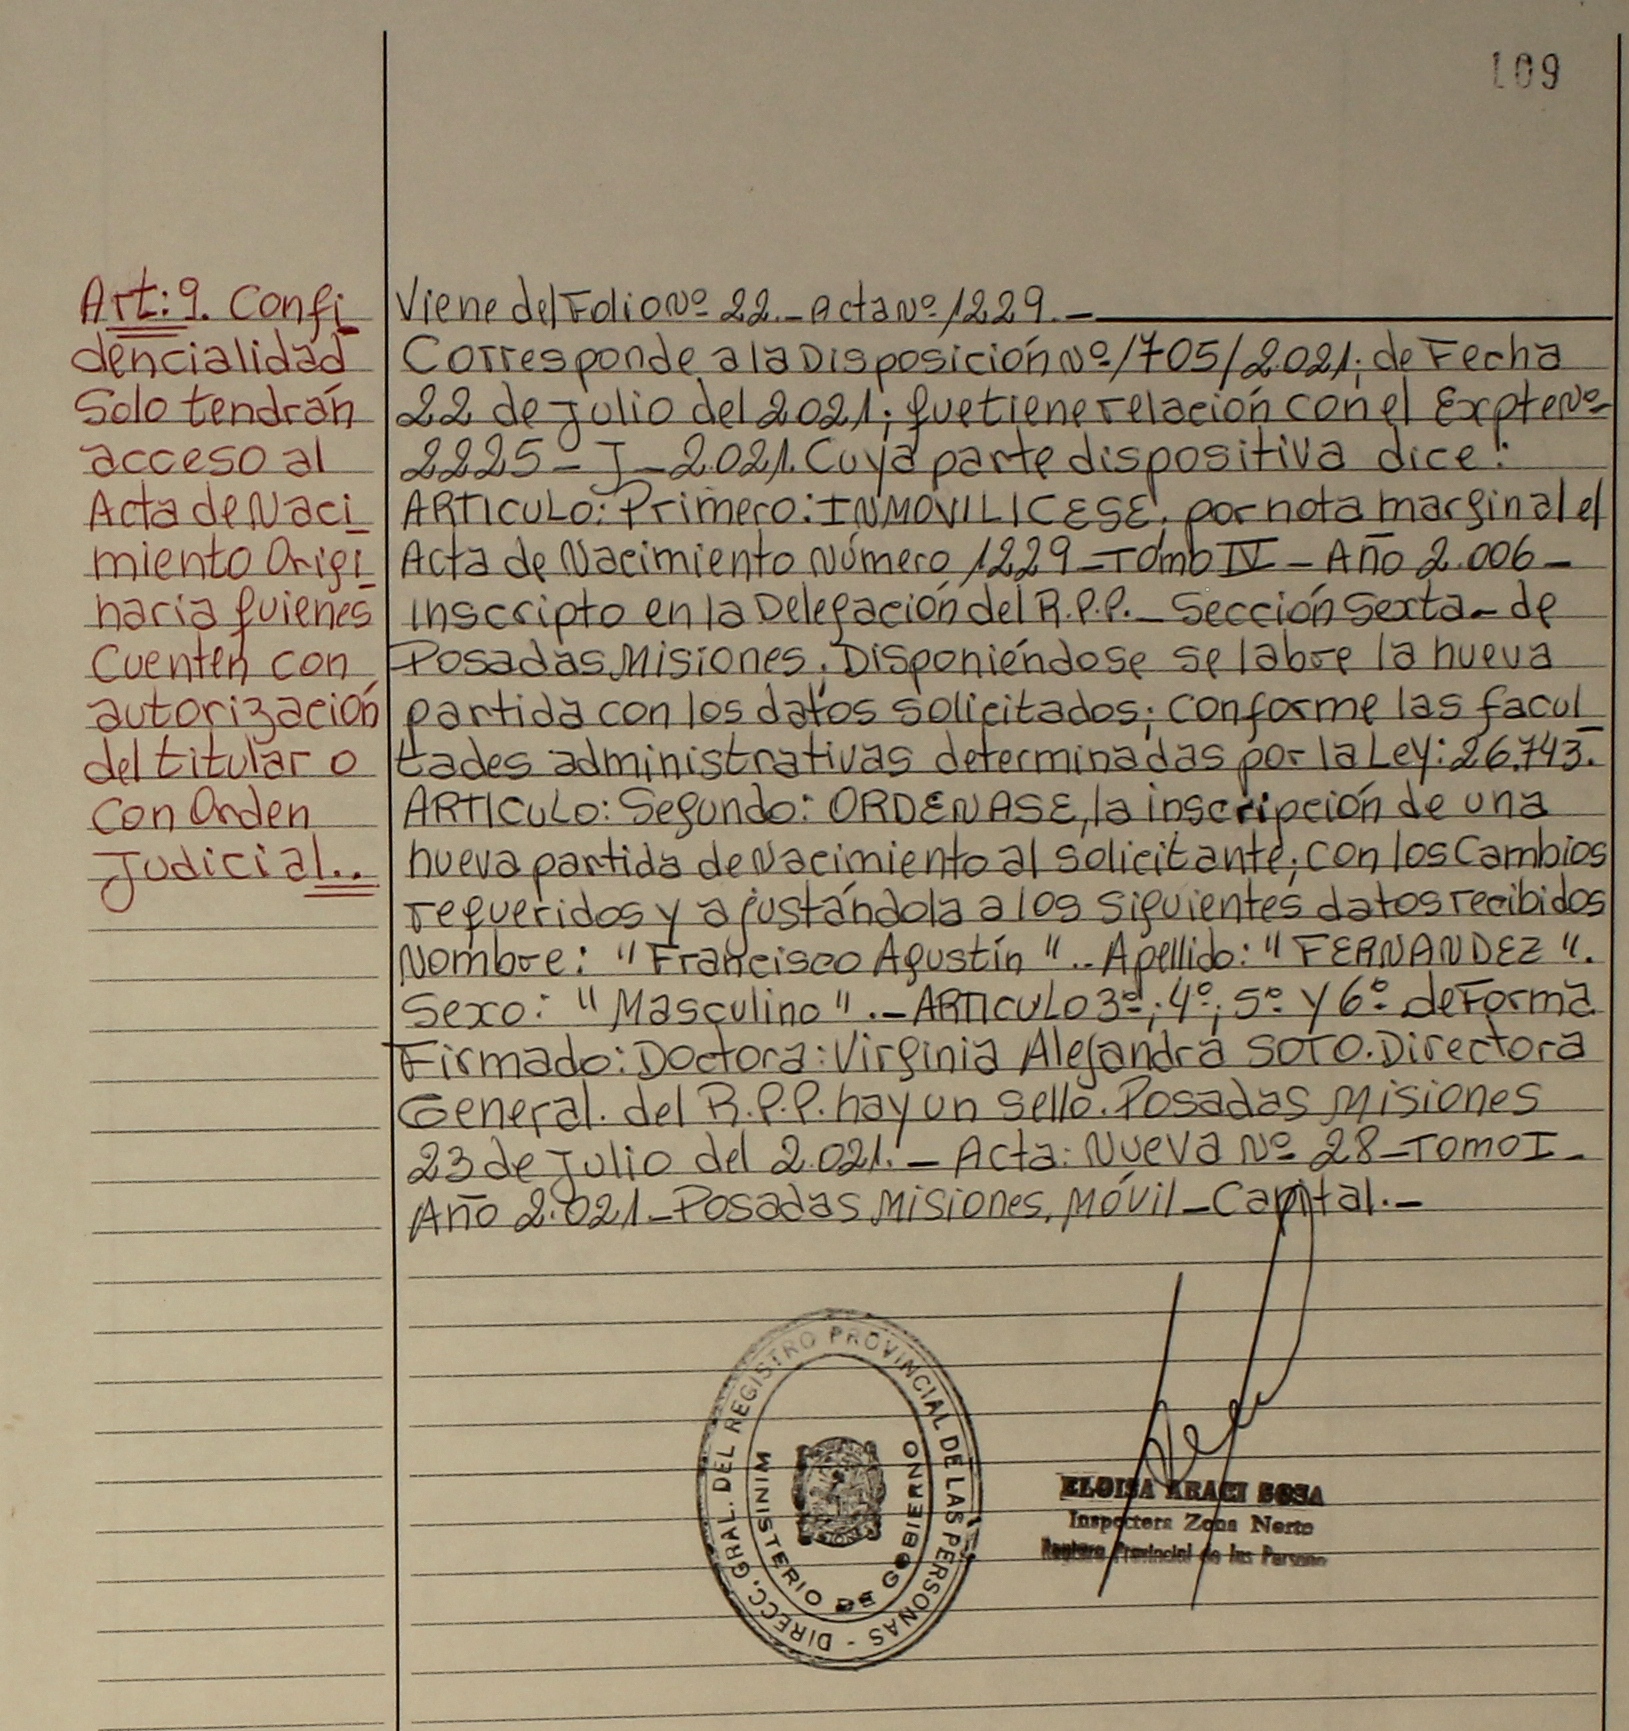 109
Art: 9. Confi_
dencialidad
Solo tendrán
acceso al
Acta de Naci_
miento Origi_
naria quienes
Cuenten con
autorización
del titular o
Con Orden
Judicial..
Viene del Folio Nº 22._ Acta Nº 1229._
Corresponde a la Disposición Nº 1705/2.021; de Fecha
22 de Julio del 2021; que tiene relación con el Expte Nº
2225_J_2.021. Cuya parte dispositiva dice:
ARTICULO: Primero: INMOVILICESE, por nota marginal el
Acta de Nacimiento Número 1229_Tomo IV_Año 2.006_
Inscripto en la Delegación del R.P.P._ Sección Sexta_ de
Posadas, Misiones. Disponiéndose se labre la nueva
partida con los datos solicitados; conforme las facul_
tades administrativas determinadas por la Ley: 26.743.
ARTICULO: Segundo: ORDENASE, la inscripción de una
nueva partida de Nacimiento al solicitante; con los Cambios
requeridos y ajustándola a los siguientes datos recibidos
Nombre: "Francisco Agustín".. Apellido: "FERNANDEZ".
Sexo: "Masculino"._ ARTICULO 3º; 4º; 5º y 6º de Forma
Firmado: Doctora: Virginia Alejandra SOTO. Directora
General. del R.P.P. hay un sello. Posadas Misiones
23 de Julio del 2.021._ Acta: Nueva Nº 28_Tomo I_
Año 2.021_Posadas Misiones, Móvil_Capital._
DIRECC. GRAL. DEL REGISTRO PROVINCIAL DE LAS PERSONAS -
MINISTERIO DE GOBIERNO
ELOISA ARACI SOSA
Inspectora Zona Norte
Registro Provincial de las Personas